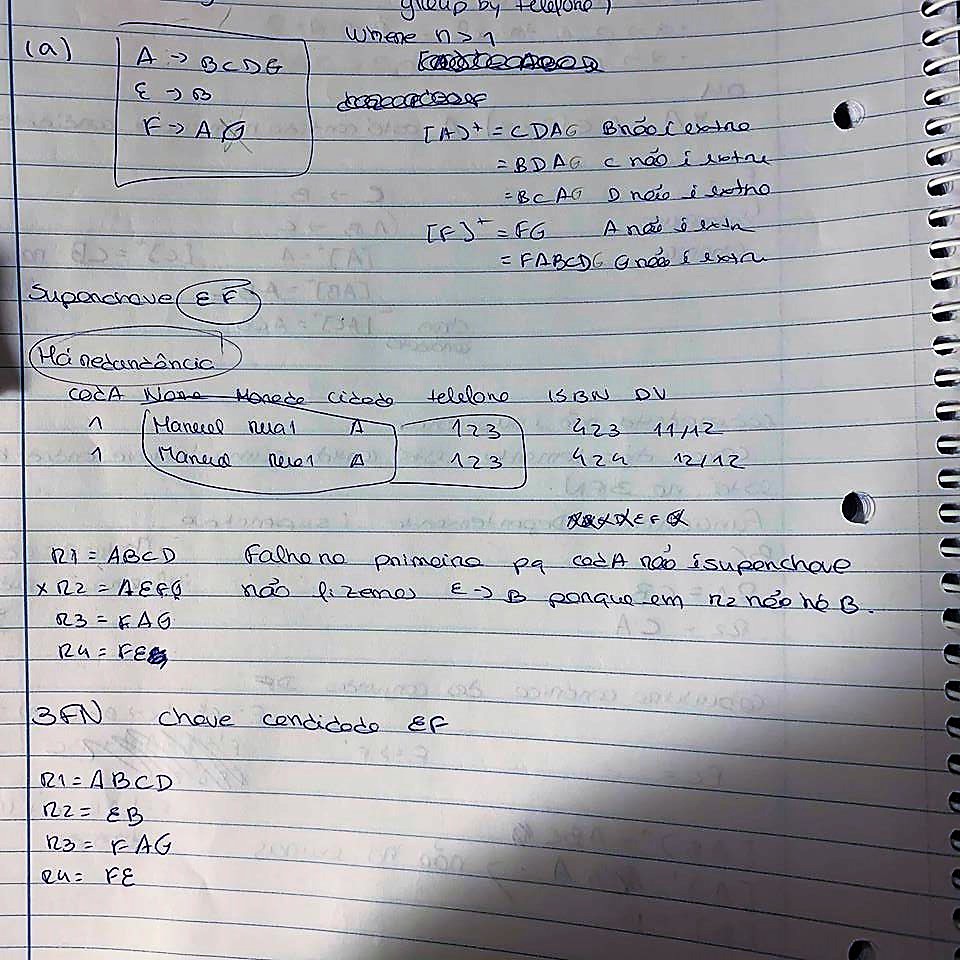 group by telefone)
where n > 1
(a)
A -> BCDG
E -> B
F -> A G
[A]+ = CDAG B não é extro
= BDAG C não é extre
= BCAG D não é extro
[F]+ = FG A não é extr
= FABCDG G não é extre
Superchave EF
Há redundância
codA Nome Morada cidade telefone ISBN DV
1 Manuel rua1 A 123 423 11/12
1 Manuel rua1 A 123 424 12/12
R1 = ABCD Falha no primeiro pq codA não é superchave
x R2 = AEFG não fizemos E -> B porque em R2 não há B.
R3 = FAG
R4 = FE
3FN chave candidada EF
R1 = ABCD
R2 = EB
R3 = FAG
R4 = FE